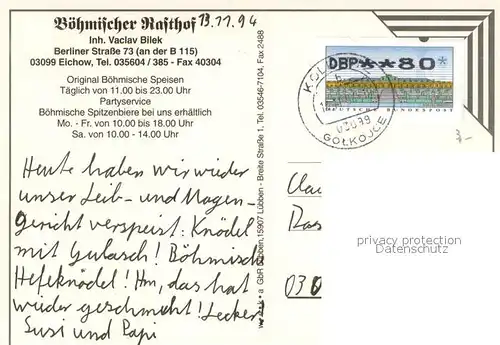 Böhmischer Rasthof
13.11.94
Inh. Vaclav Bilek
Berliner Straße 73 (an der B 115)
03099 Eichow, Tel. 035604 / 385 - Fax 40304
Original Böhmische Speisen
Täglich von 11.00 bis 23.00 Uhr
Partyservice
Böhmische Spitzenbiere bei uns erhältlich
Mo. - Fr. von 10.00 bis 18.00 Uhr
Sa. von 10.00 - 14.00 Uhr
Heute haben wir wieder
unser Leib- und Magen-
gericht verspeist: Knödel
mit Gulasch! Böhmisch
Hefeknödel! Hm, das hat
wieder geschmeckt! Lecker
Susi und Papi
GbR Lübben, 15907 Lübben - Breite Straße 1, Tel. 03546-7104, Fax 2488
DBP**80*
DEUTSCHE BUNDESPOST
03099
GOŁKOJCE
Clau
Ras
030
privacy protection
Datenschutz